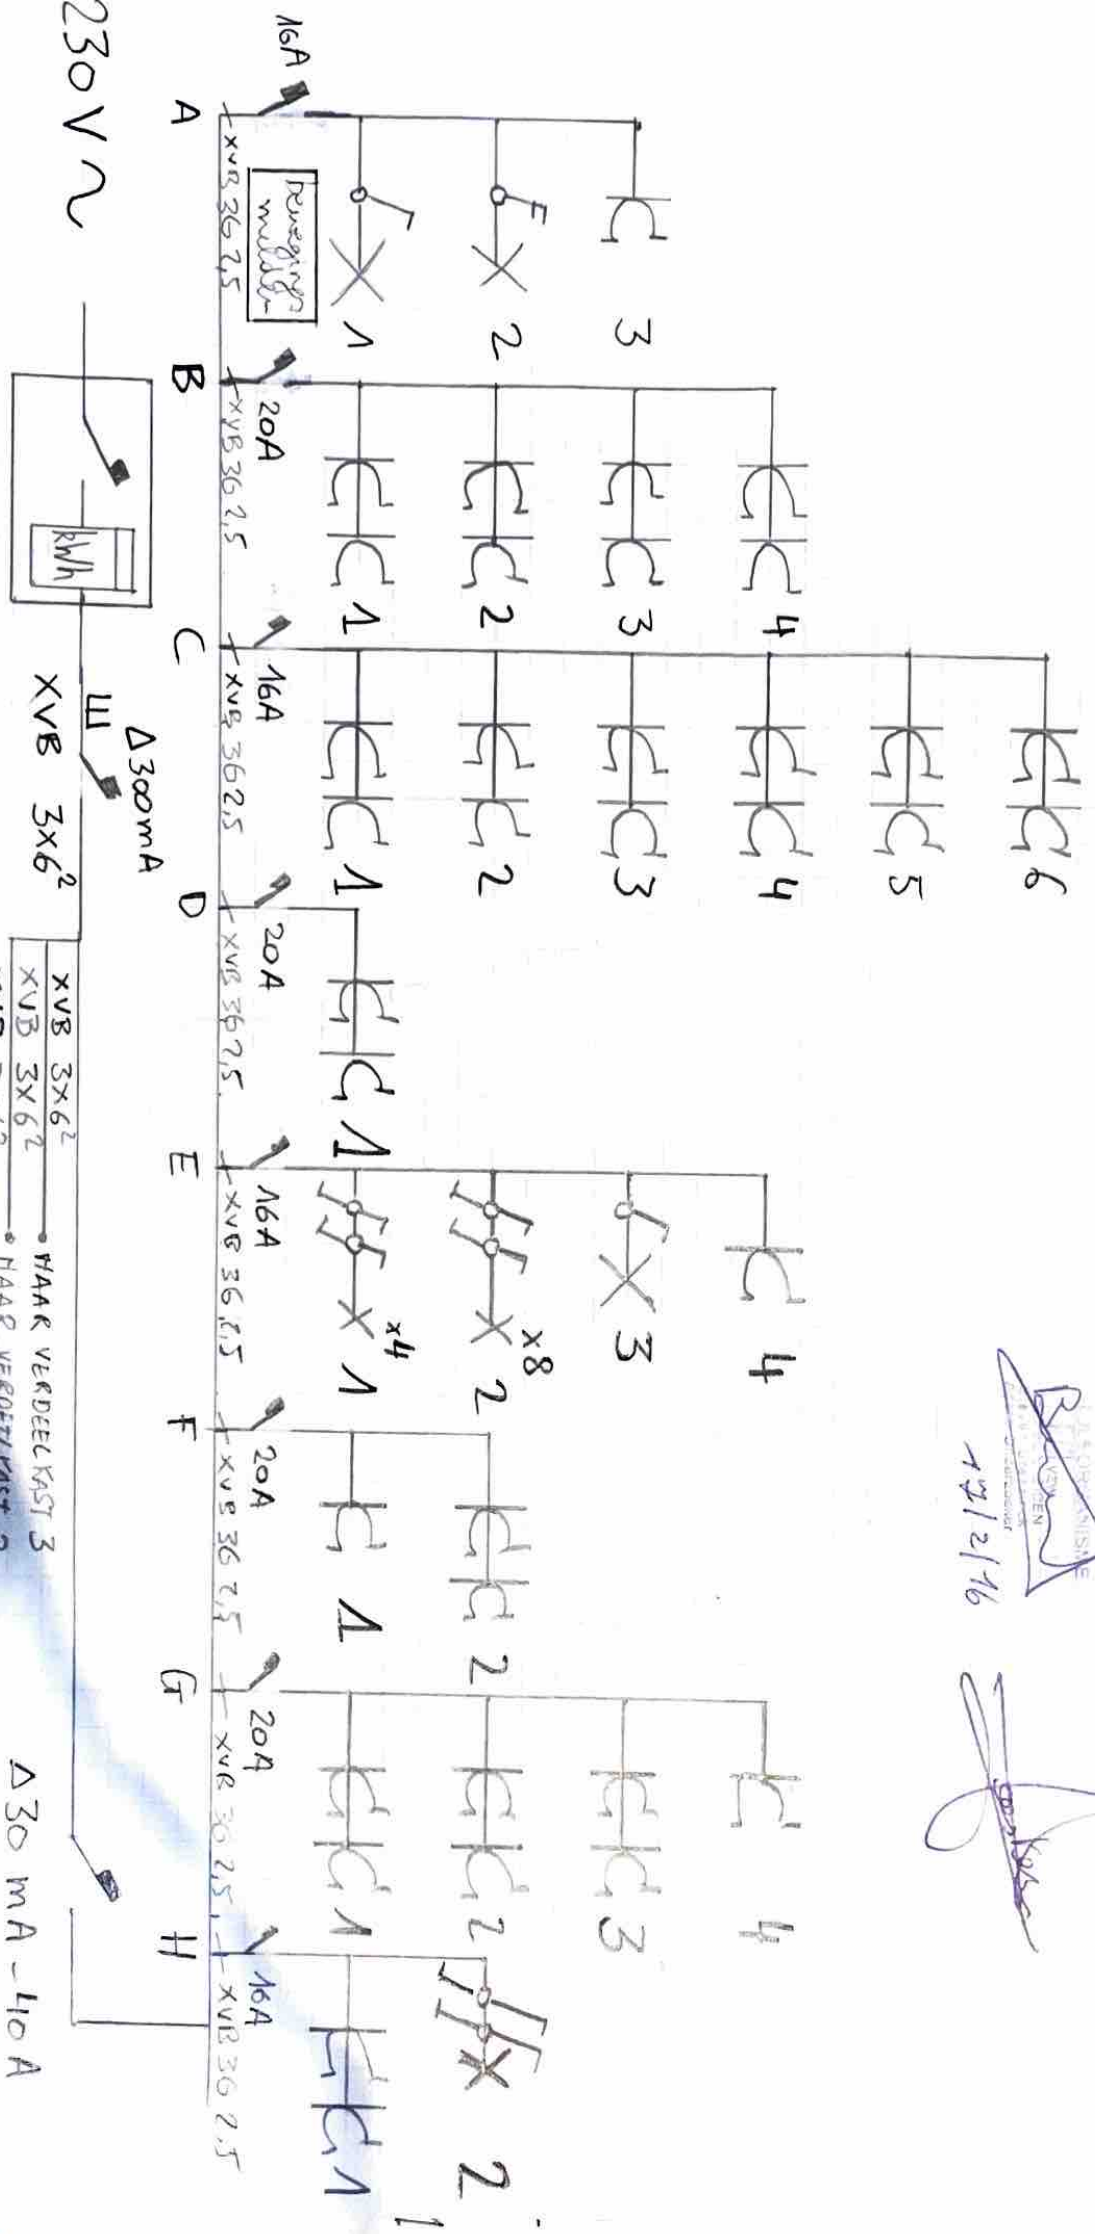 230V ~
kWh
Δ300mA
XVB 3x6²
XVB 3x6² NAAR VERDEELKAST 3
XVB 3x6² NAAR VERDEELKAST 2
Δ30 mA - 40A
A 16A XVB 3G 2,5
Bewegings
melder
1
2
3
B 20A XVB 3G 2,5
1
2
3
4
C 16A XVB 3G 2,5
1
2
3
4
5
6
D 20A XVB 3G 2,5
1
E 16A XVB 3G 2,5
x4 1
x8 2
3
4
F 20A XVB 3G 2,5
1
2
G 20A XVB 3G 2,5
1
2
3
4
H 16A XVB 3G 2,5
1
2
1
17/2/16